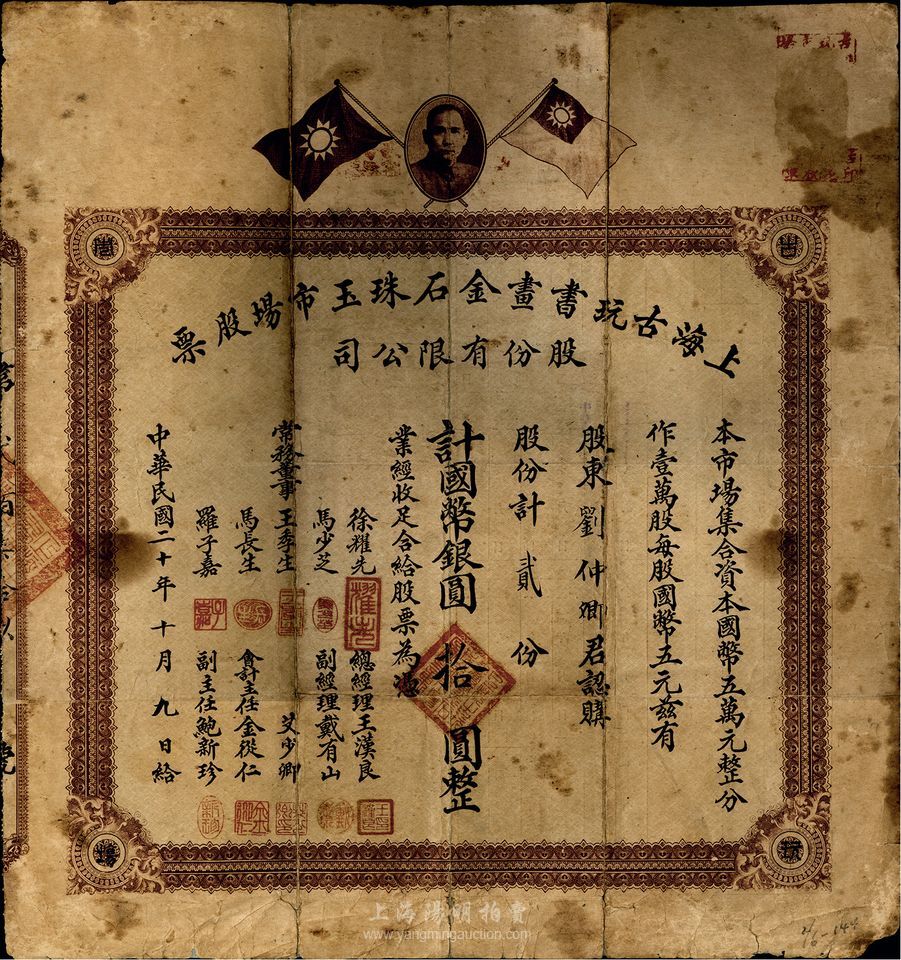 上海古玩書畫金石珠玉市場股票
股份有限公司
本市場集合資本國幣五萬元整分
作壹萬股每股國幣五元茲有
股東劉仲卿君認購
股份計貳份
計國幣銀圓拾圓整
業經收足合給股票為憑
常務董事
徐耀先
馬少芝
王季生
馬長生
羅子嘉
總經理王漢良
副經理戴有山
艾少卿
會計主任金從仁
副主任鮑新珍
中華民國二十年十月九日給
古
市
場
上海陽明拍賣
www.yangmingauction.com